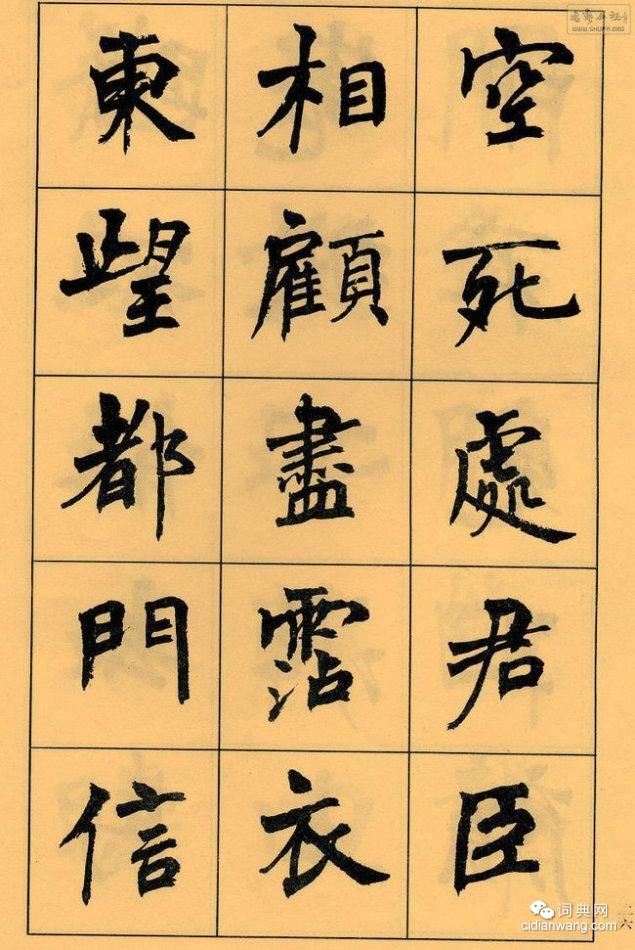 空死處君臣
相顧盡霑衣
東望都門信
二六
WWW.SHUFA.ORG
词典网
cidianwang.com